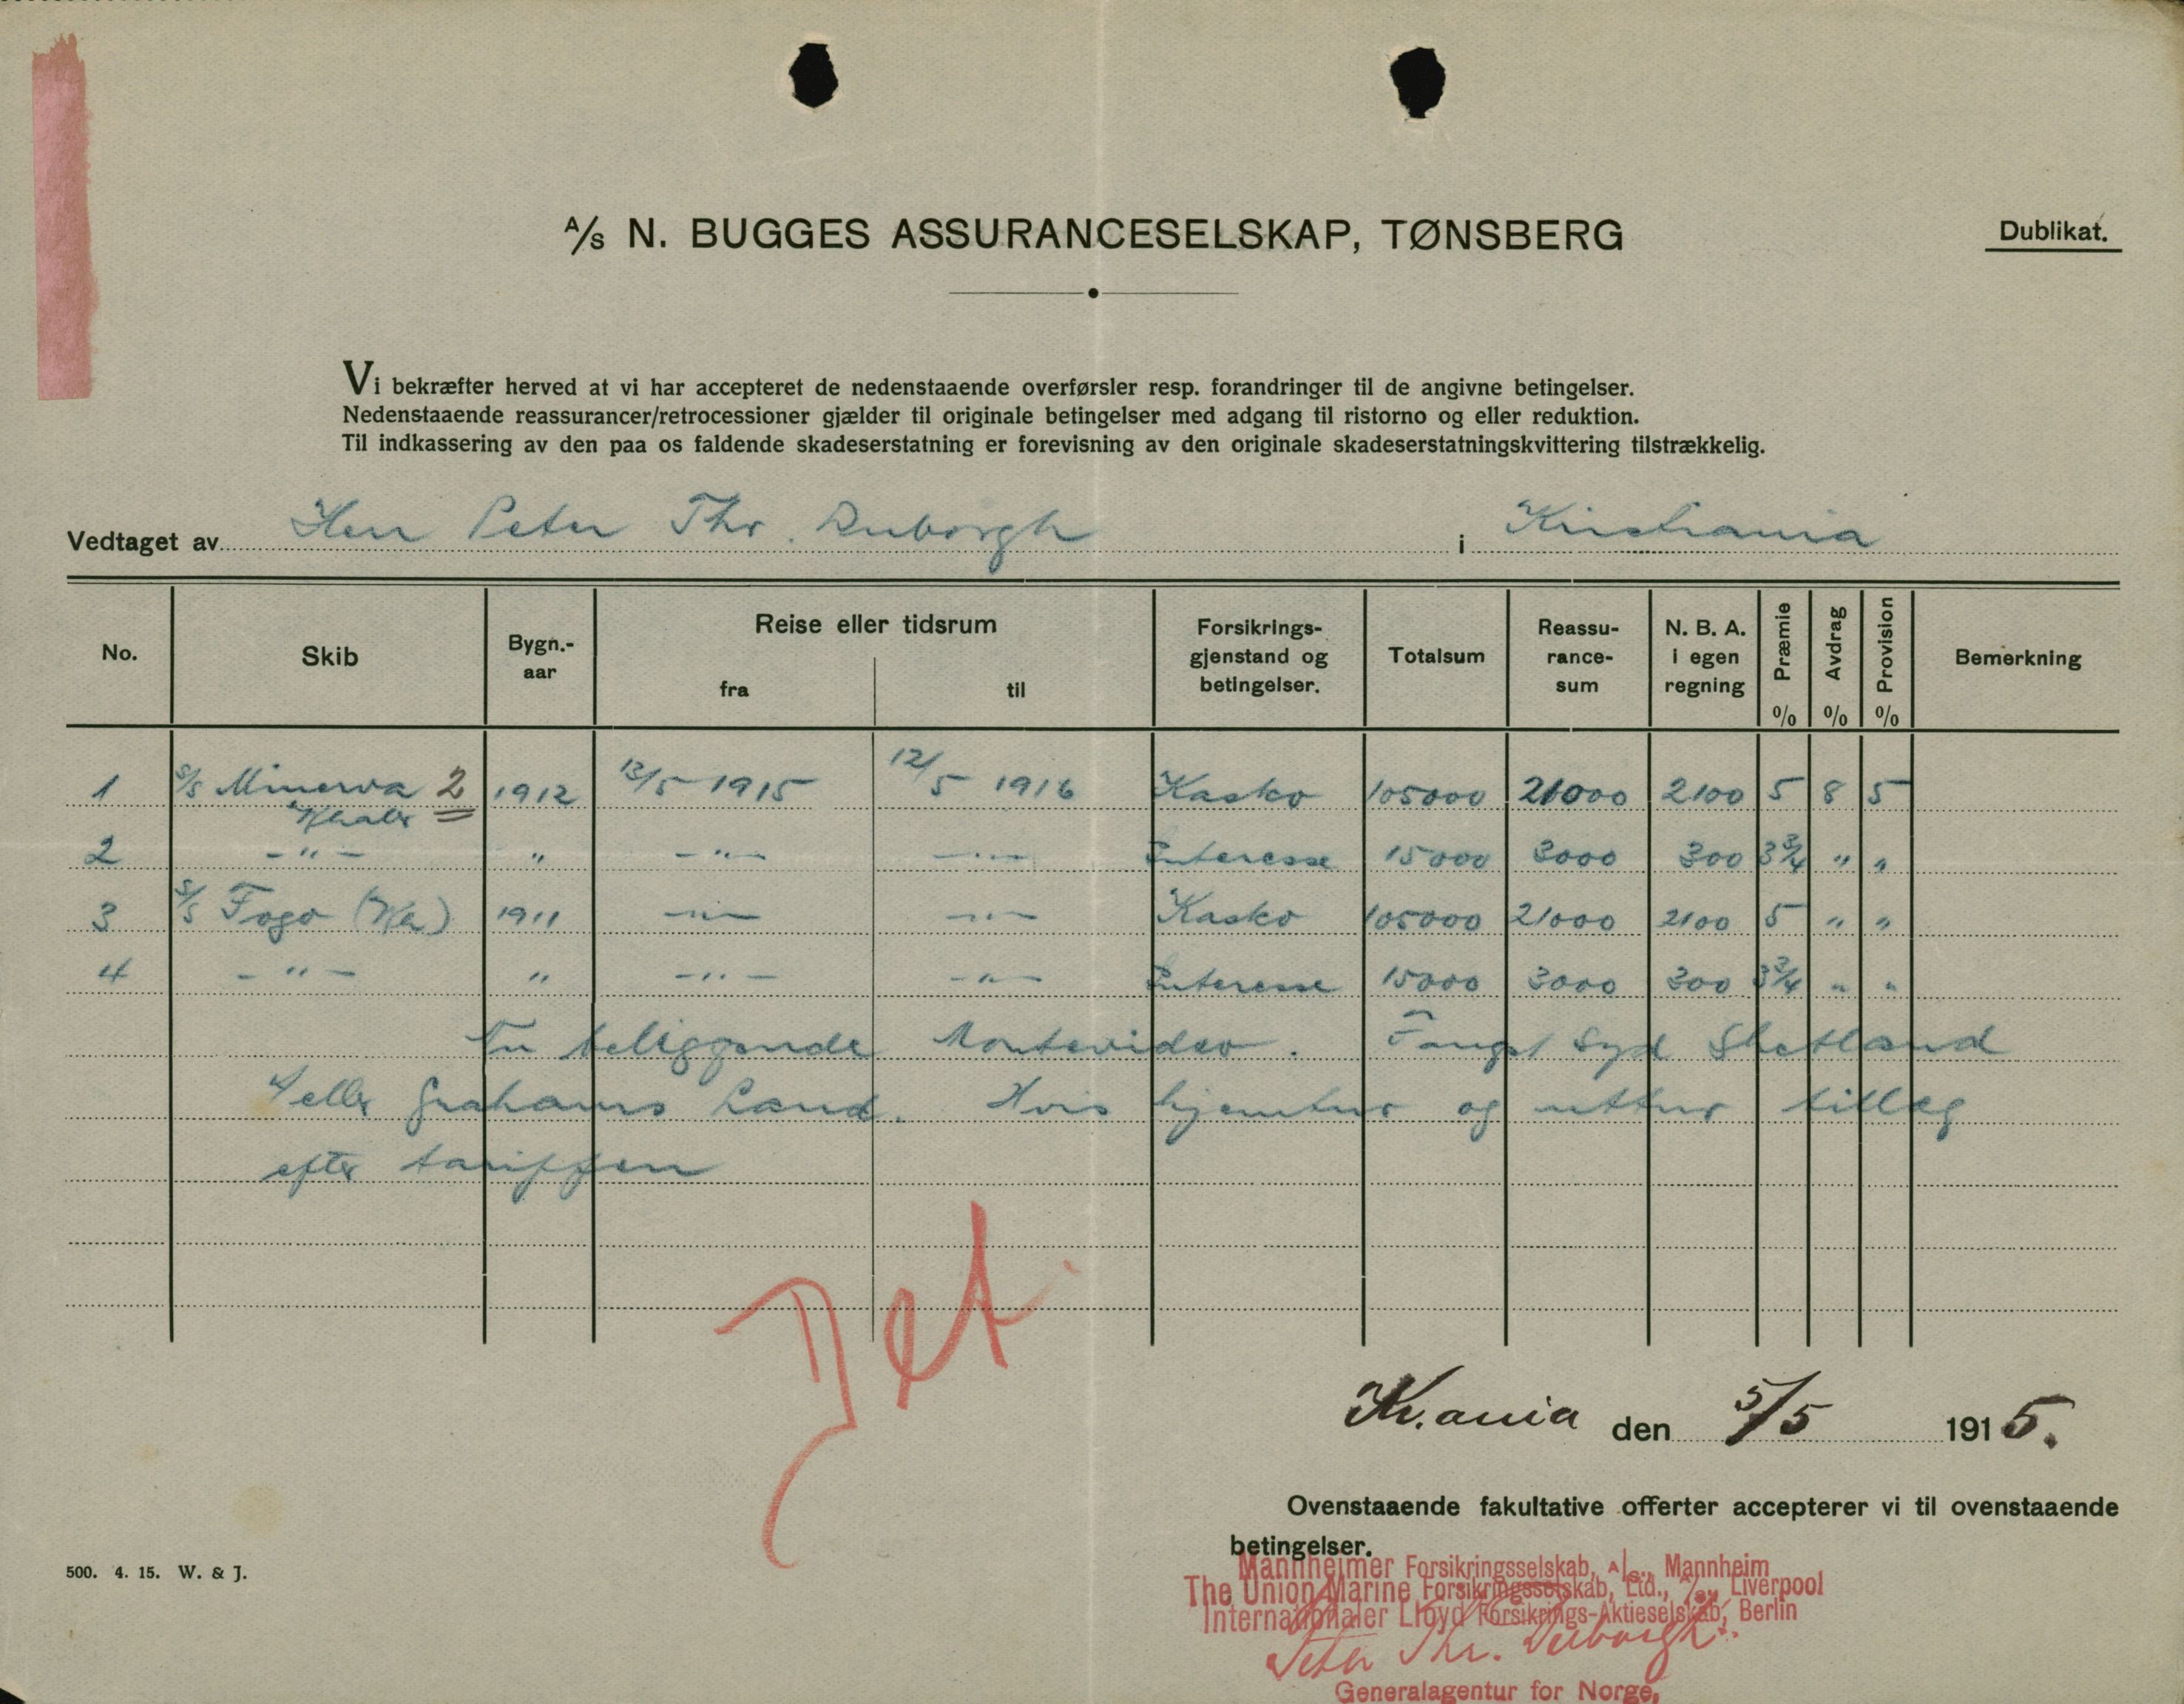 A/S N. BUGGES ASSURANCESELSKAP, TØNSBERG
Dublikat.
Vi bekræfter herved at vi har accepteret de nedenstaaende overførsler resp. forandringer til de angivne betingelser.
Nedenstaaende reassurancer/retrocessioner gjælder til originale betingelser med adgang til ristorno og eller reduktion.
Til indkassering av den paa os faldende skadeserstatning er forevisning av den originale skadeserstatningskvittering tilstrækkelig.
Vedtaget av Herr Peter Thr. Duborgh i Kristiania
No. Skib Bygn.-aar Reise eller tidsrum fra til Forsikrings-gjenstand og betingelser. Totalsum Reassu-rance-sum N. B. A. i egen regning Præmie % Avdrag % Provision % Bemerkning
1 S/S Minerva 2 1912 13/5 1915 12/5 1916 Kasko 105000 21000 2100 5 8 5
Hvaler
2 -"- " -"- -"- Interesse 15000 3000 300 3 3/4 " "
3 S/S Fogo (Ha) 1911 -"- -"- Kasko 105000 21000 2100 5 " "
4 -"- " -"- -"- Interesse 15000 3000 300 3 3/4 " "
Nu beliggende Montevideo. Fangst Syd Shetland
eller Grahams Land. Hvis hjemtur og uttur tillæg
efter tariffen
Kr.ania den 5/5 1915.
Ovenstaaende fakultative offerter accepterer vi til ovenstaaende
betingelser.
Mannheimer Forsikringsselskab, A/S., Mannheim
The Union Marine Forsikringsselskab, Ltd., A/S., Liverpool
Internationaler Lloyd Forsikrings-Aktieselskab, Berlin
Peter Thr. Duborgh.
Generalagentur for Norge,
500. 4. 15. W. & J.